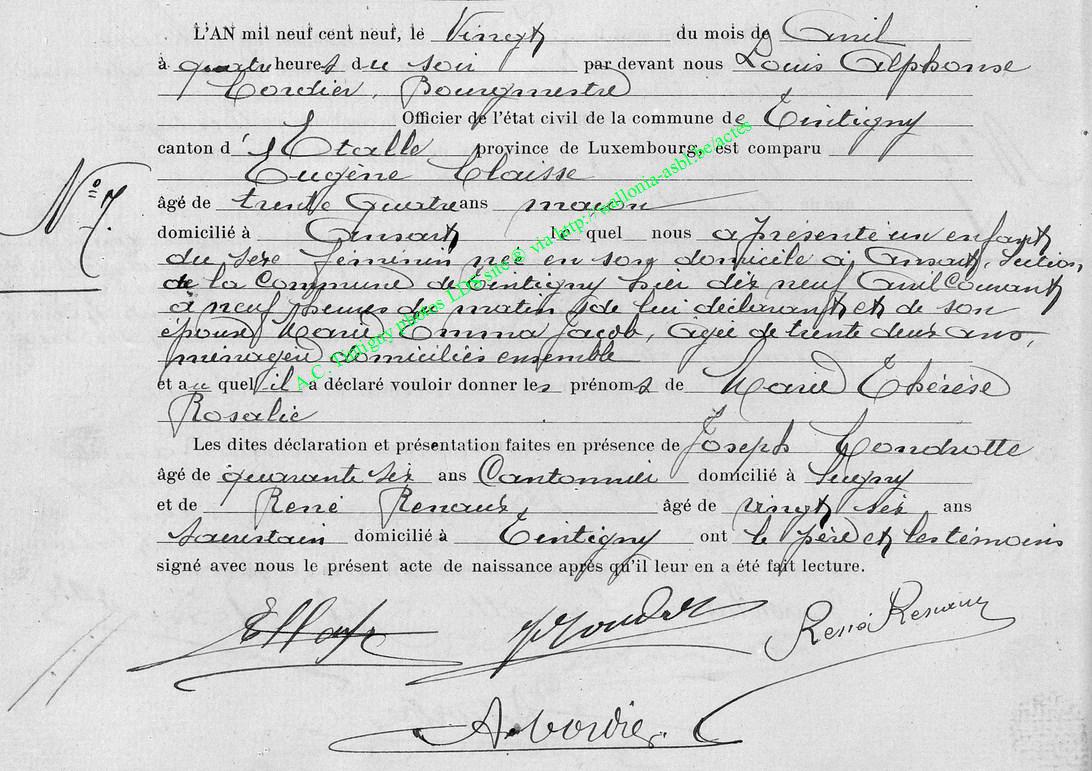 L'AN mil neuf cent neuf, le Vingt du mois de Avril
à quatre heures du soir par devant nous Louis Alphonse
Cordier, Bourgmestre
Officier de l'état civil de la commune de Tintigny
canton d'Etalle province de Luxembourg, est comparu
Eugène Claisse
N° 7.
âgé de trente quatre ans maçon
domicilié à Ansart lequel nous a présenté un enfant
du sexe féminin née en son domicile à Ansart, section
de la Commune de Tintigny hier dix neuf Avril Courant
à neuf heures du matin de lui déclarant et de son
épouse Marie Emma Jacob, agée de trente deux ans,
ménagère domiciliés ensemble
et au quel il a déclaré vouloir donner les prénoms de Marie Thérèse
Rosalie
Les dites déclaration et présentation faites en présence de Joseph Hondrotte
âgé de quarante six ans Cantonnier domicilié à
et de René Renaux, âgé de vingt six ans
domicilié à Tintigny ont le père et les témoins
signé avec nous le présent acte de naissance après qu'il leur en a été fait lecture.
René Renaux
A. Cordier
A.C. Tintigny photos LDS site @ via http://wallonia-asbl.be/actes